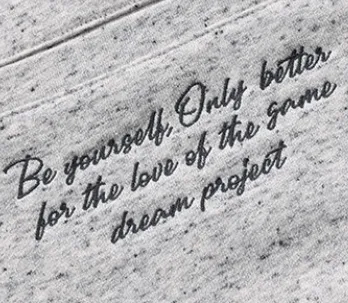 Be yourself, Only better
for the love of the game
dream project